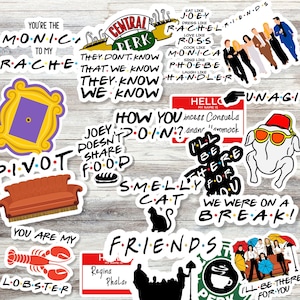 YOU'RE THE
MONICA
TO MY
RACHEL
CENTRAL
PERK
THEY DON'T KNOW
THAT WE KNOW
THEY KNOW
WE KNOW
EAT LIKE
JOEY
DRESS LIKE
RACHEL
LOVE LIKE
ROSS
COOK LIKE
MONICA
SING LIKE
PHOEBE
LAUGH LIKE
CHANDLER
FRIENDS
HELLO
UNAGI
HOW YOU
DOIN?
JOEY
DOESN'T
SHARE
FOOD
I'LL
BE
THERE
FOR
YOU
PIVOT
SMELLY
CAT
WE WERE ON A
BREAK!
YOU ARE MY
LOBSTER
FRIENDS
HELLO
Regina
Phalange
I'LL BE THERE
FOR YOU